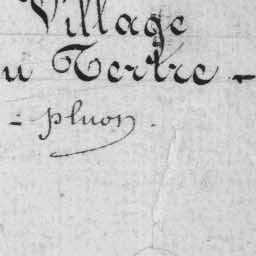 Village
u Tertre -
- pluon.